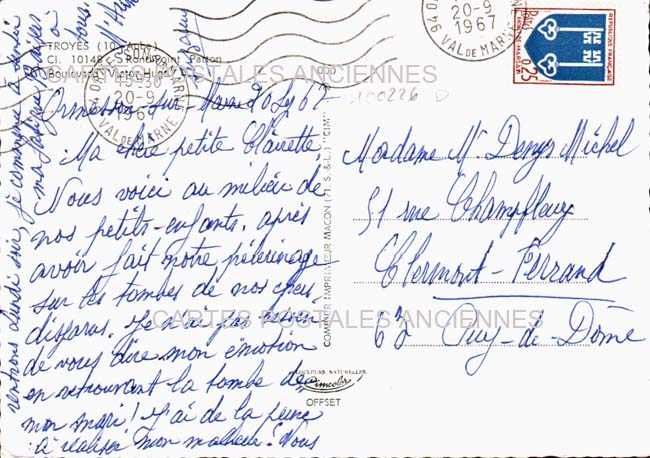 TROYES (10 - Aube)
CI. 10148 - Rond-Point Patton
Boulevard Victor-Hugo
15-30
20-9
1967
VAL DE MARNE
20-9
1967
94 VAL DE MARNE
REPUBLIQUE FRANÇAISE
0,25
CARTES POSTALES ANCIENNES
100226 D
Ormesson-sur-Marne 20 Sept 67
Ma chère petite Clairette,
Nous voici au milieu de
nos petits-enfants, après
avoir fait notre pélerinage
sur les tombes de nos chers
disparus. Je n'ai pas besoin
de vous dire mon émotion
en retrouvant la tombe de
mon mari! J'ai de la peine
à réaliser mon malheur! Nous
rentrons lundi soir, je commence à sentir
ma fatigue. Baisers à
tous.
Madame Mr Denys Michel
51 rue Champfleury
Clermont-Ferrand
63 Puy-de-Dôme
COMBIER IMPRIMEUR MACON (71. S.-&-L.) "CIM"
CARTES POSTALES ANCIENNES
COULEURS NATURELLES
Cimcolor
OFFSET